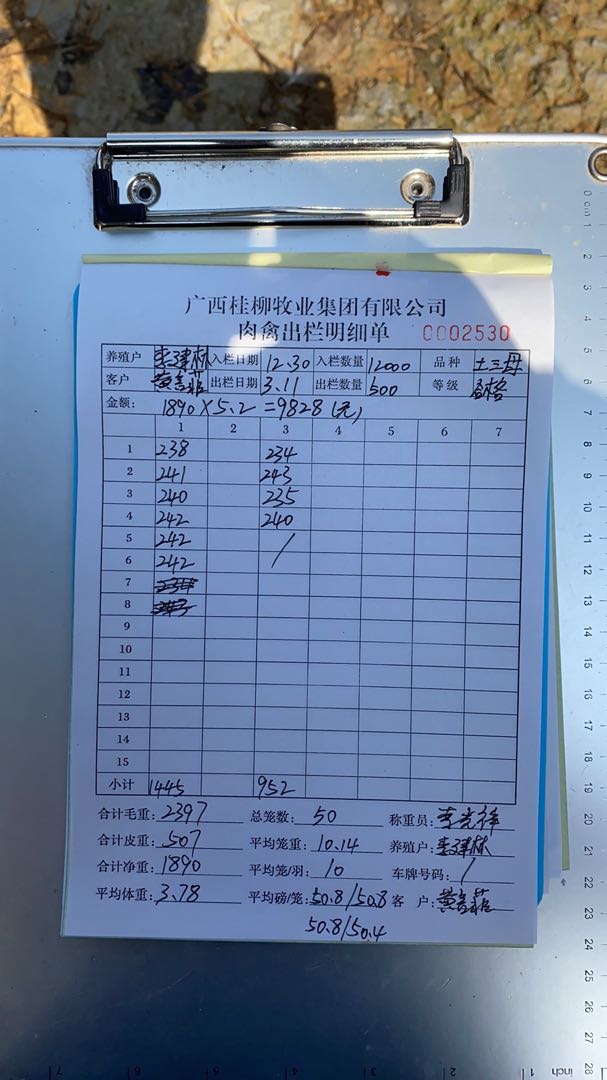 广西桂柳牧业集团有限公司
肉禽出栏明细单 0002530
养殖户 李建林 入栏日期 12.30 入栏数量 12000 品种 土三丹
客户 出栏日期 3.11 出栏数量 500 等级 合格
金额: 1890×5.2=9828(元)
1 2 3 4 5 6 7
1 238 234
2 241 243
3 240 235
4 242 240
5 242 /
6 242
7
8
9
10
11
12
13
14
15
小计 1445 952
合计毛重: 2397 总笼数: 50 称重员: 李光祥
合计皮重: 507 平均笼重: 10.14 养殖户: 李建林
合计净重: 1890 平均笼/羽: 10 车牌号码: /
平均体重: 3.78 平均磅/笼: 50.8/50.8 客户:
50.8/50.4
0cm 1 2 3 4 5 6 7 8 9 10 11 12 13 14 15 16 17 18 19 20 21 22 23 24 25 26 27 28
7 6 5 4 3 2 1 inch